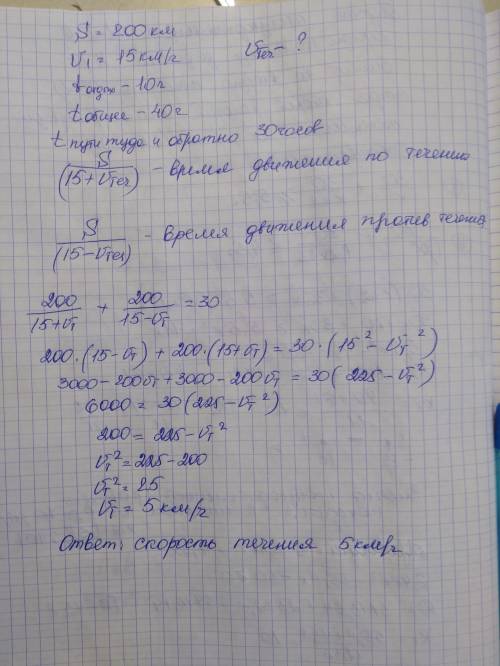 S = 200 км
V₁ = 15 км/г Vтеч - ?
t отдых - 10г
t общее - 40г
t пути туда и обратно 30 часов
S/(15+Vтеч) - время движения по течению
S/(15-Vтеч) - Время движения против течения
200/(15+Vт) + 200/(15-Vт) = 30
200·(15-Vт) + 200·(15+Vт) = 30·(15² - Vт²)
3000-200Vт+3000-200Vт = 30(225-Vт²)
6000 = 30(225-Vт²)
200 = 225-Vт²
Vт² = 225-200
Vт² = 25
Vт = 5 км/г
Ответ: скорость течения 5км/г